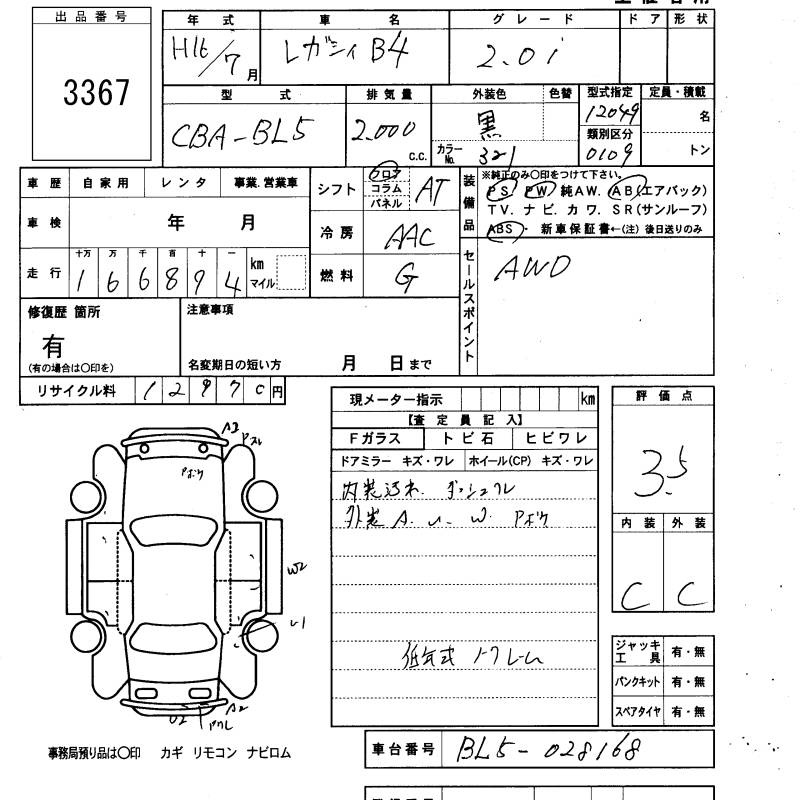 出品番号
3367
年式 車名 グレード ドア 形状
H16/7月 レガシィB4 2.0i
型式 排気量 外装色 色替 型式指定 定員・積載
CBA-BL5 2.000 c.c. 黒 12049 名
カラーNo. 321 類別区分 0109 トン
車歴 自家用 レンタ 事業.営業車
車検 年 月
走行 十万 万 千 百 十 一
1 6 6 8 9 4 km マイル
シフト フロア コラム パネル AT
冷房 AAC
燃料 G
装備品 ※純正のみ〇印をつけて下さい。
PS PW 純AW. AB(エアバック)
TV. ナビ. カワ. SR(サンルーフ)
ABS・ 新車保証書←(注) 後日送りのみ
セールスポイント AWD
修復歴 箇所
有
(有の場合は〇印を)
注意事項
名変期日の短い方 月 日まで
リサイクル料 1 2 9 7 0 円
現メーター指示 km
【査定員記入】
Fガラス トビ石 ヒビワレ
ドアミラー キズ・ワレ ホイール(CP) キズ・ワレ
内装汚れ. ダッシュワレ
外装 A. U. W. Pボケ
評価点
3.5
内装 外装
C C
A2
Pボケ
W2
U1
U2
A2
ジャッキ工具 有・無
パンクキット 有・無
スペアタイヤ 有・無
車台番号 BL5-028168
事務局預り品は〇印 カギ リモコン ナビロム